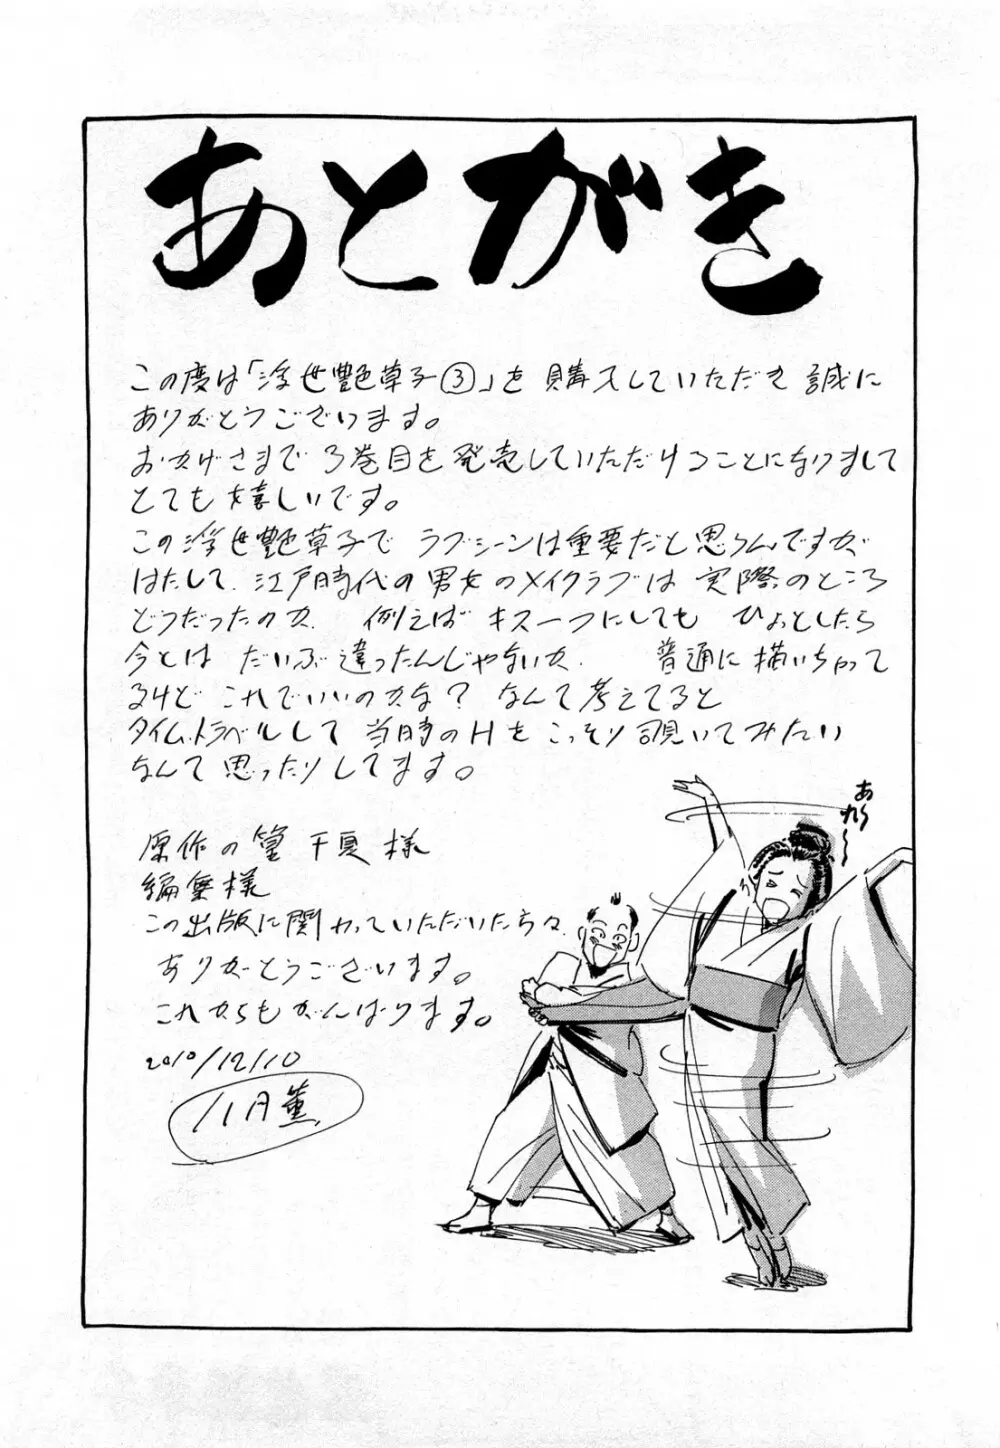 あとがき
この度は「浮世艶草子③」を購入していただき誠に
ありがとうございます。
おかげさまで3巻目を発売していただけることになりまして
とても嬉しいです。
この浮世艶草子でラブシーンは重要だと思うんですが
はたして、江戸時代の男女のメイクラブは実際のところ
どうだったのか、例えばキス一つにしてもひょっとしたら
今とはだいぶ違ったんじゃないか、普通に描いちゃって
るけどこれでいいのかな？なんて考えてると
タイムトラベルして当時のHをこっそり覗いてみたい
なんて思ったりしてます。
原作の篁千夏様
編集様
この出版に関わっていただいた方々、
ありがとうございます。
これからもがんばります。
2010/12/10
八月薫
あ〜れ〜〜